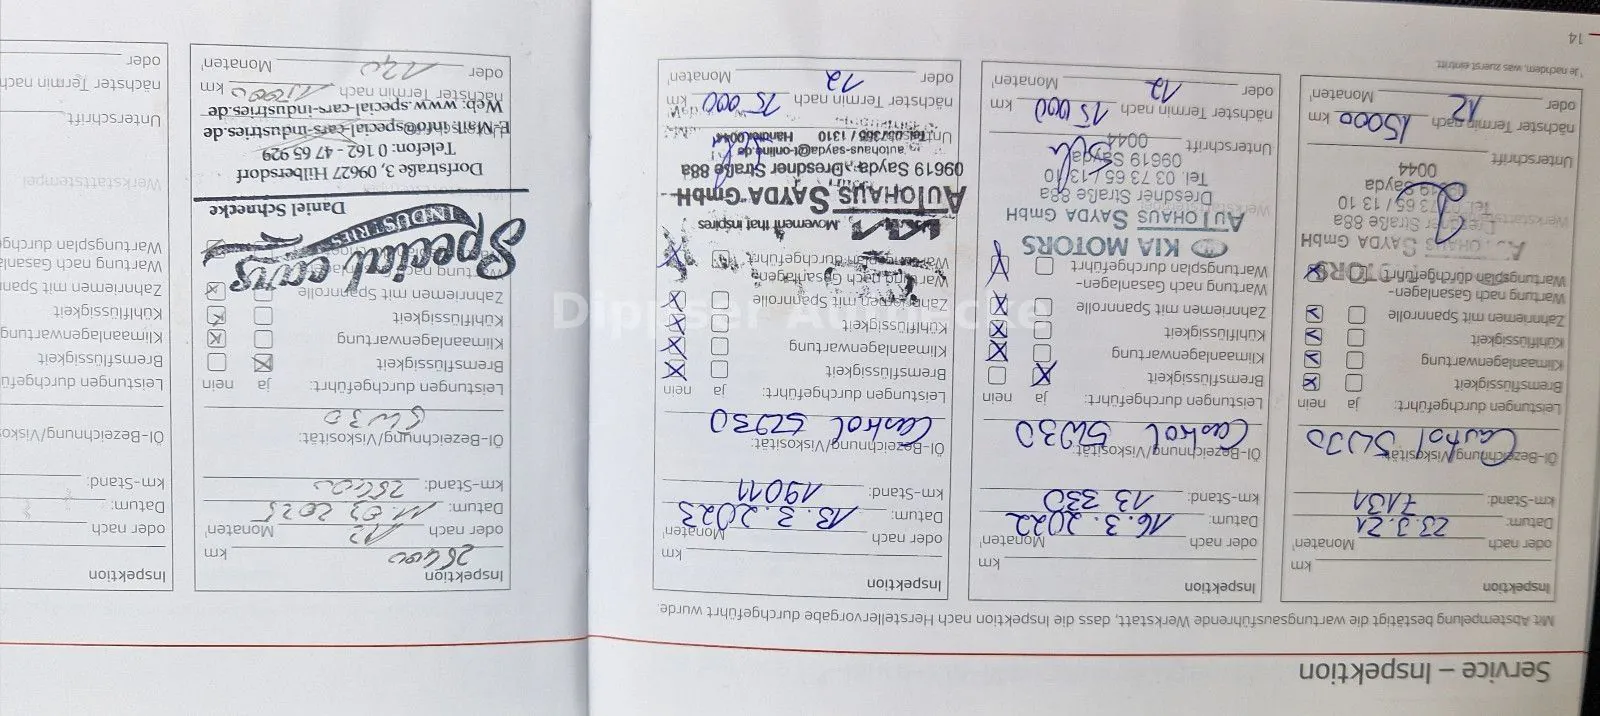 Service – Inspektion
Mit Abstempelung bestätigt die wartungsausführende Werkstatt, dass die Inspektion nach Herstellervorgabe durchgeführt wurde:
Inspektion
km
oder nach Monaten¹
Datum: 23.3.21
km-Stand: 7131
Öl-Bezeichnung/Viskosität:
Castrol 5W30
Leistungen durchgeführt: ja nein
Bremsflüssigkeit
Klimaanlagenwartung
Kühlflüssigkeit
Zahnriemen mit Spannrolle
Wartung nach Gasanlagen-
Wartungsplan durchgeführt
MOTORS
AUTOHAUS SAYDA GmbH
Dresdner Straße 88a
Tel. 73 65 / 13 10
Sayda
0044
Unterschrift
nächster Termin nach 15000 km
oder 12 Monaten¹
¹ Je nachdem, was zuerst eintritt.
14
Inspektion
km
oder nach Monaten¹
Datum: 16.3.2022
km-Stand: 13 330
Öl-Bezeichnung/Viskosität:
Castrol 5W30
Leistungen durchgeführt: ja nein
Bremsflüssigkeit
Klimaanlagenwartung
Kühlflüssigkeit
Zahnriemen mit Spannrolle
Wartung nach Gasanlagen-
Wartungsplan durchgeführt
KIA MOTORS
AUTOHAUS SAYDA GmbH
Dresdner Straße 88a
Tel. 03 73 65 - 13 10
09619 Sayda
0044
Unterschrift
nächster Termin nach 15 000 km
oder 12 Monaten¹
Inspektion
km
oder nach Monaten¹
Datum: 13.3.2023
km-Stand: 19011
Öl-Bezeichnung/Viskosität:
Castrol 5W30
Leistungen durchgeführt: ja nein
Bremsflüssigkeit
Klimaanlagenwartung
Kühlflüssigkeit
Zahnriemen mit Spannrolle
Wartung nach Gasanlagen-
Wartungsplan durchgeführt
Movement that inspires
AUTOHAUS SAYDA GmbH
09619 Sayda · Dresdner Straße 88a
autohaus-sayda@t-online.de
Tel. 037365 / 1310 Händler 0044
nächster Termin nach 15 000 km
oder 12 Monaten¹
Inspektion
26400 km
oder nach 12 Monaten¹
Datum: 11.03.2025
km-Stand: 26400
Öl-Bezeichnung/Viskosität:
5W30
Leistungen durchgeführt: ja nein
Bremsflüssigkeit
Klimaanlagenwartung
Kühlflüssigkeit
Zahnriemen mit Spannrolle
Special cars
INDUSTRIES
Daniel Schnecke
Dorfstraße 3, 09627 Hilbersdorf
Telefon: 0 162 - 47 65 929
E-Mail: info@special-cars-industries.de
Web: www.special-cars-industries.de
nächster Termin nach km
oder Monaten¹
Inspektion
oder nach
Datum:
km-Stand:
Öl-Bezeichnung/Visko
Leistungen durchgefü
Bremsflüssigkeit
Klimaanlagenwartung
Kühlflüssigkeit
Zahnriemen mit Span
Wartung nach Gasanla
Wartungsplan durchge
Werkstattstempel
Unterschrift
nächster Termin nach
oder